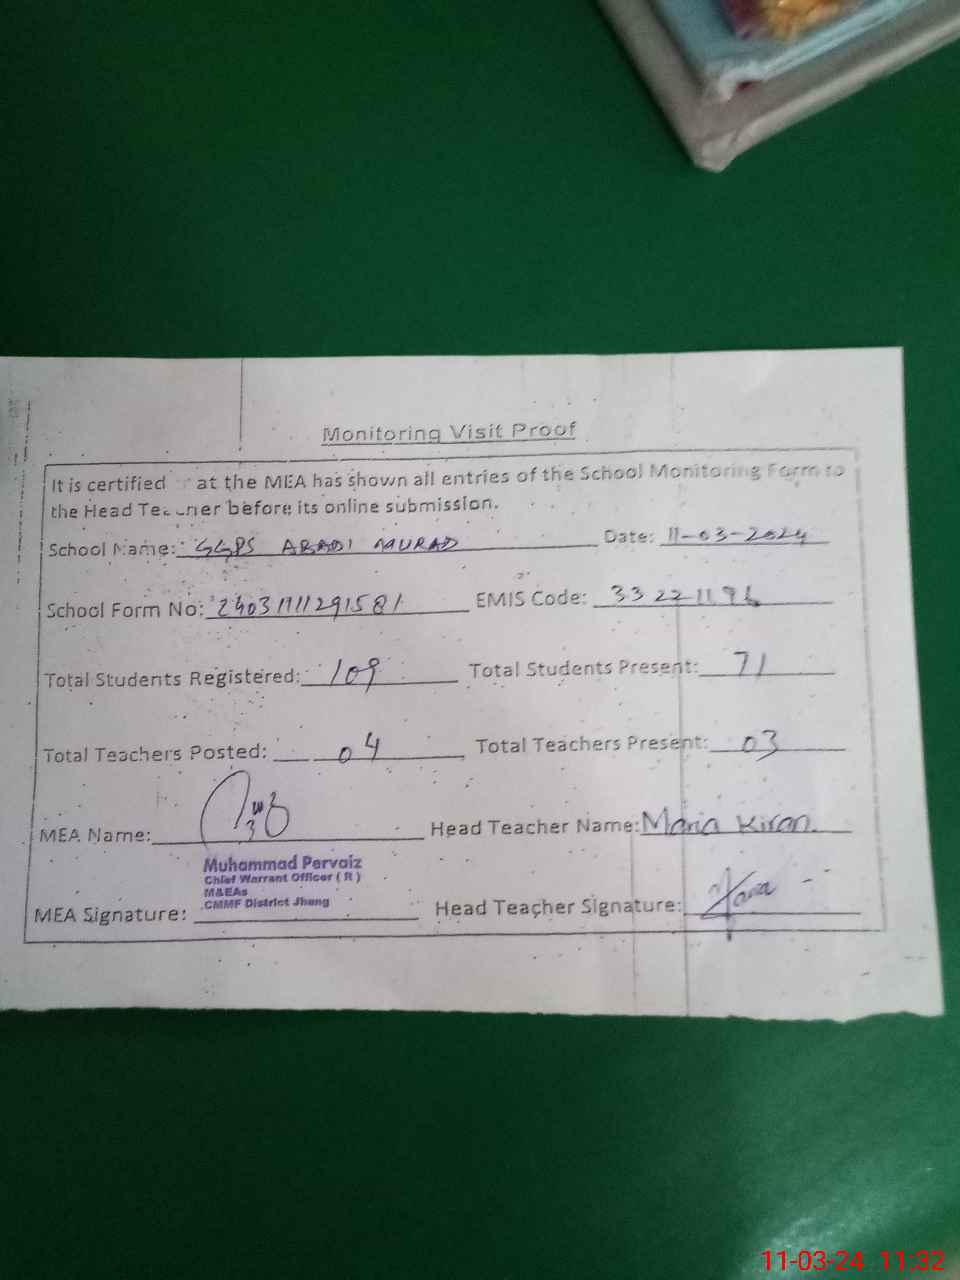 Monitoring Visit Proof
It is certified at the MEA has shown all entries of the School Monitoring Form to
the Head Teacher before its online submission.
School Name: GGPS ABADI MURAD Date: 11-03-2024
School Form No: 24031111291581 EMIS Code: 33221196
Total Students Registered: 109 Total Students Present: 71
Total Teachers Posted: 04 Total Teachers Present: 03
MEA Name: Head Teacher Name: Maria Kiran.
Muhammad Pervaiz
Chief Warrant Officer ( R )
M&EAs
CMMF District Jhang
MEA Signature: Head Teacher Signature:
11-03-24 11:32